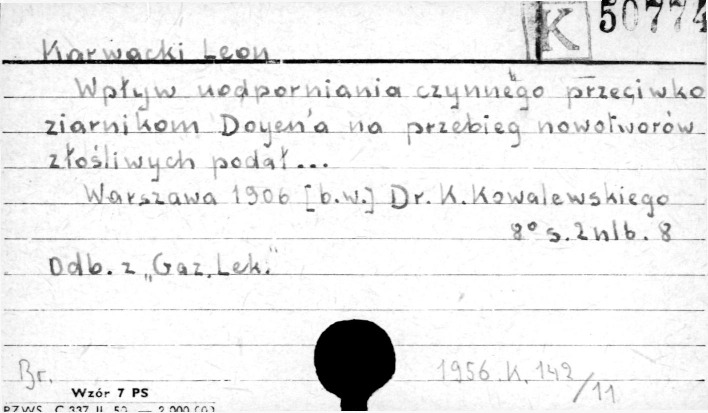 K 50774
Karwacki Leon
Wpływ uodporniania czynnego przeciwko
ziarnikom Doyen'a na przebieg nowotworów
złośliwych podał...
Warszawa 1906 [b.w.] Dr. K. Kowalewskiego
8° s. 2 nlb. 8
Odb. z „Gaz. Lek."
Br. 1956. K. 142/11
Wzór 7 PS
PZWS. C 337 II. 52 — 2.000